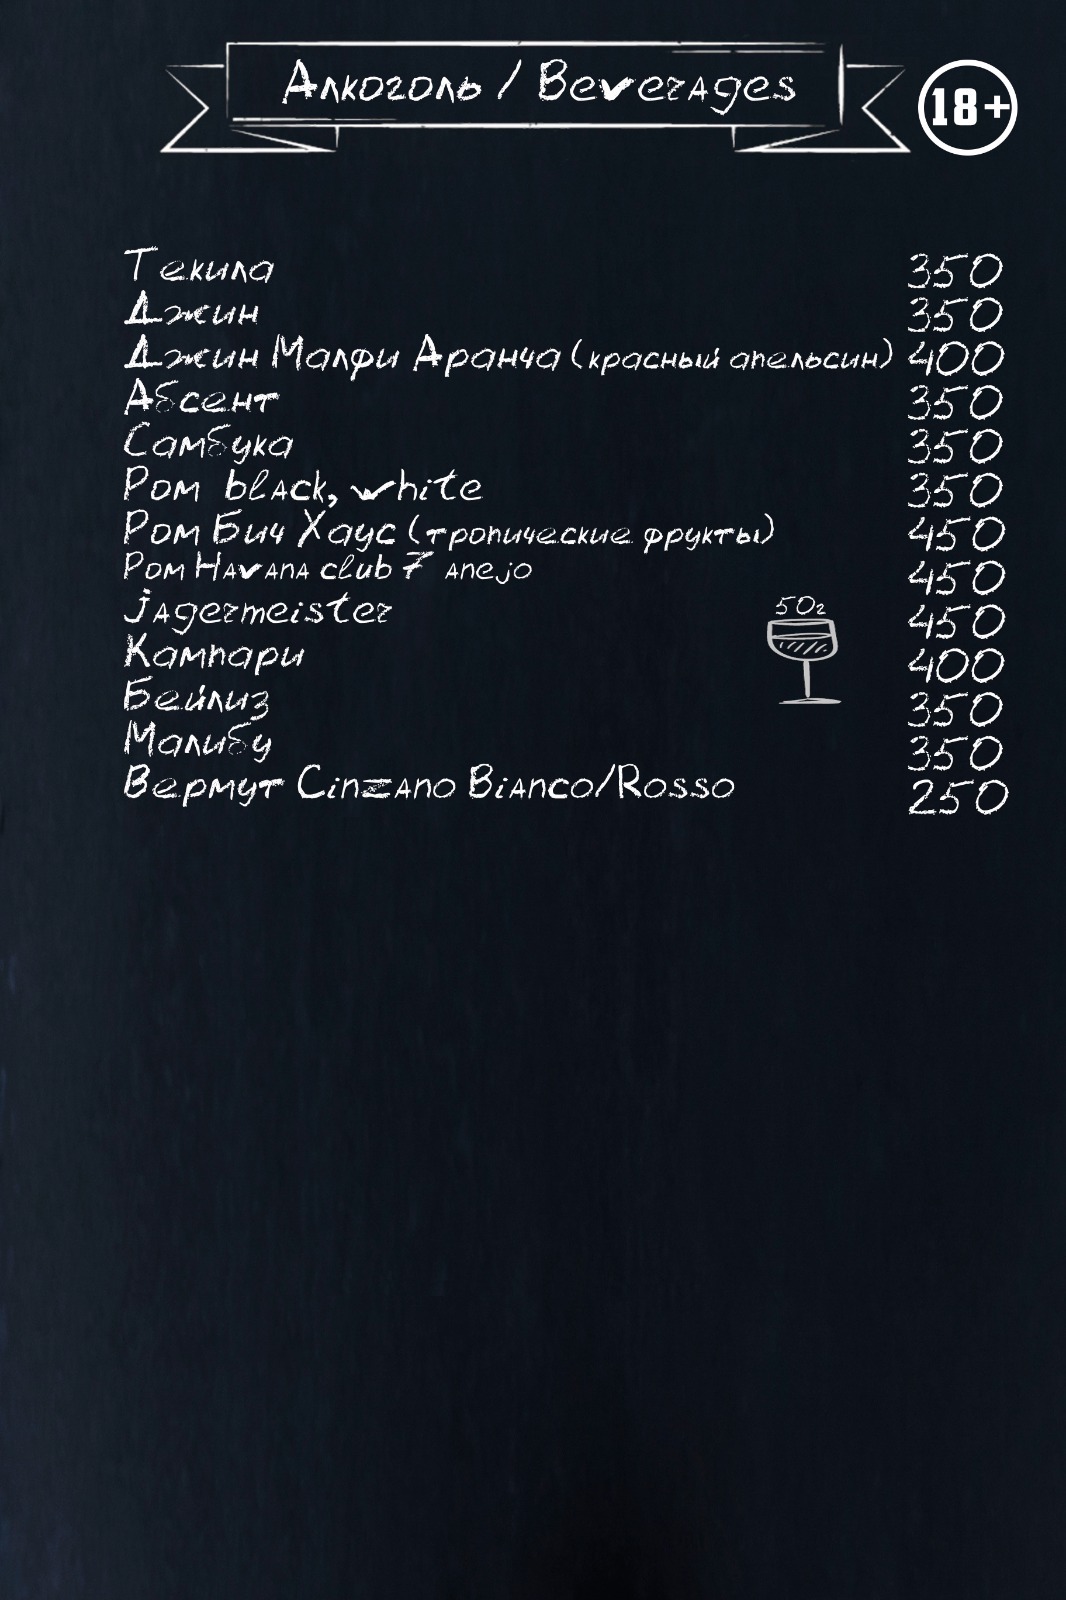 Алкоголь / Beverages
18+
Текила 350
Джин 350
Джин Малфи Аранча (красный апельсин) 400
Абсент 350
Самбука 350
Ром black, white 350
Ром Бич Хаус (тропические фрукты) 450
Ром Havana club 7 anejo 450
jagermeister 450
50г
Кампари 400
Бейлиз 350
Малибу 350
Вермут Cinzano Bianco/Rosso 250